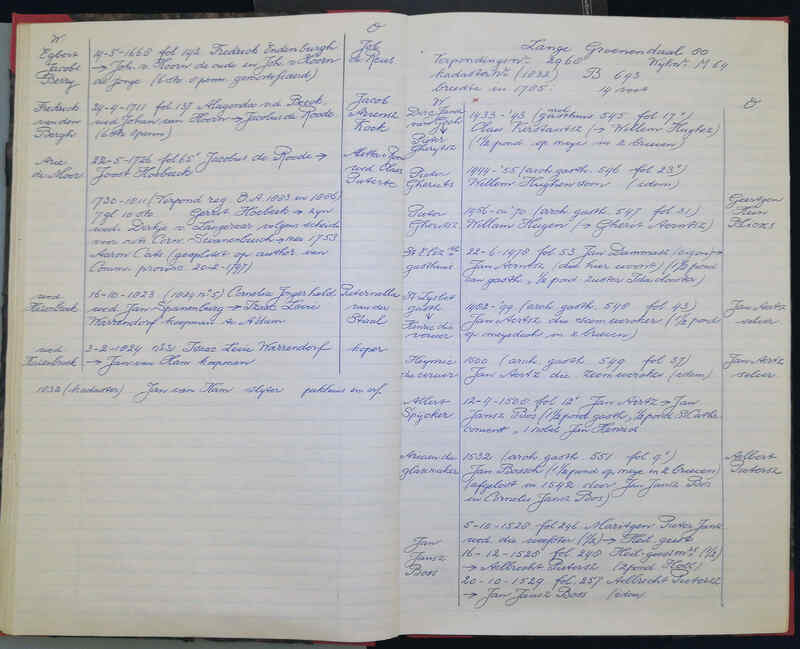 W
O
Egbert
Jacobs
Berry
14-5-1668 fol 192 Frederick Endenburgh
→ Johan v. Hoorn de oude en Joh. v Hoorn
de jonge (6 str. 8 penn.
Joh
de Reus
Frederick
van den
Bergh
24-4-1711 fol 137 Alagonda v.d. Beeck,
wed Johan van Hoorn → Jacobus de Roode
(6 str 8 penn)
Jacob
Ariensz
Kock
Arie
de Moor
22-5-1726 fol 65 Jacobus de Roode →
Joost Hosbeek
wed Claes
Pietersz
1730-1811 (Verpond. reg. O.A. 1003 en 1006)
7 gl 10 str. Gerrit Hosbeek → zijn
wed. Dirkje v. Langeraar volgens scheid.
voor nots Corn. → nov 1753
Aaron Cats (geroyeerd op author. van
Comm. provinc. 20-2-1797)
wed
16-10-1823 (1824 n° 5) Cornelia Jongerheld
wed Jan Spanenburg → Isaac Levie
Warrendorf koopman te A'dam
Pieternella
van der
Staal
wed
2-2-1824 1831 Isaac Levie Warrendorf
→ Jan van Ham koopman
koper
1832 (kadaster) Jan van Ham slijter pakhuis en erf.
Lange Groenendaal 80
Verpondingsnr. 2960 Wijknr. M 64
kadasternr (1832) B 693
breedte in 1785: 14 voet
W
O
Dirc Jacobs
van Gogh
↓
Pieter
Gherytsz
1433-'43 (arch gasthuis 545 fol 17v)
Claas Kerstantsz (→ Willem Hughez)
(1½ pond op meye in 2 brieven)
Pieter
Gherietsz
1444-'55 (arch gasth 546 fol 23v)
Willem Hughenzoon (idem)
Pieter
Gheritsz
1456-ca '70 (arch gasth. 547 fol 31)
Willam Hugen (→ Gherit Aerntsz)
Geertgen
Hein
gasthuis
22-6-1478 fol 53 Jan Dammasz (eigen) →
Jan Aerntsz (die hier woont) (1½ pond
aan gasth, ½ pond zuster IJdaclooster)
St Lysbet
gasth
↓
Heinric die
vuerer
1482-'99 (arch gasth. 548 fol 43)
Jan Aertsz die zeemwercker (1½ pond
op meyedach in 2 brieven)
Jan Aertz
Heynric
die vuerer
1500 (arch gasth 549 fol 37)
Jan Aertz die zeemwercker (idem)
Jan Aertz
Allert
Spijcker
12-4-1506 fol 12v Jan Aertz → Jan
Jansz Bos (1½ pond gasth, ½ pond St Cathr.
convent, 1 nobel Jan Henrick
Ariaen die
glasmaker
1532 (arch gasth 551 fol 9v)
Jan Bossch (1½ pond op meye in 2 brieven)
(afgelost in 1542 door Jan Jansz Bos
en Cornelis Jansz Bos)
Aelbert
Pietersz
Jan
Jansz
Boss
5-10-1528 fol 246 Maritgen Pieter Jansz
wed die weefster (½) → Heil. geest
16-12-1528 fol 248 Heil-geestmrs (½)
→ Aelbrecht Pietersz (2 pond Holl)
20-10-1529 fol 257 Aelbrecht Pietersz
→ Jan Jansz Boss (idem